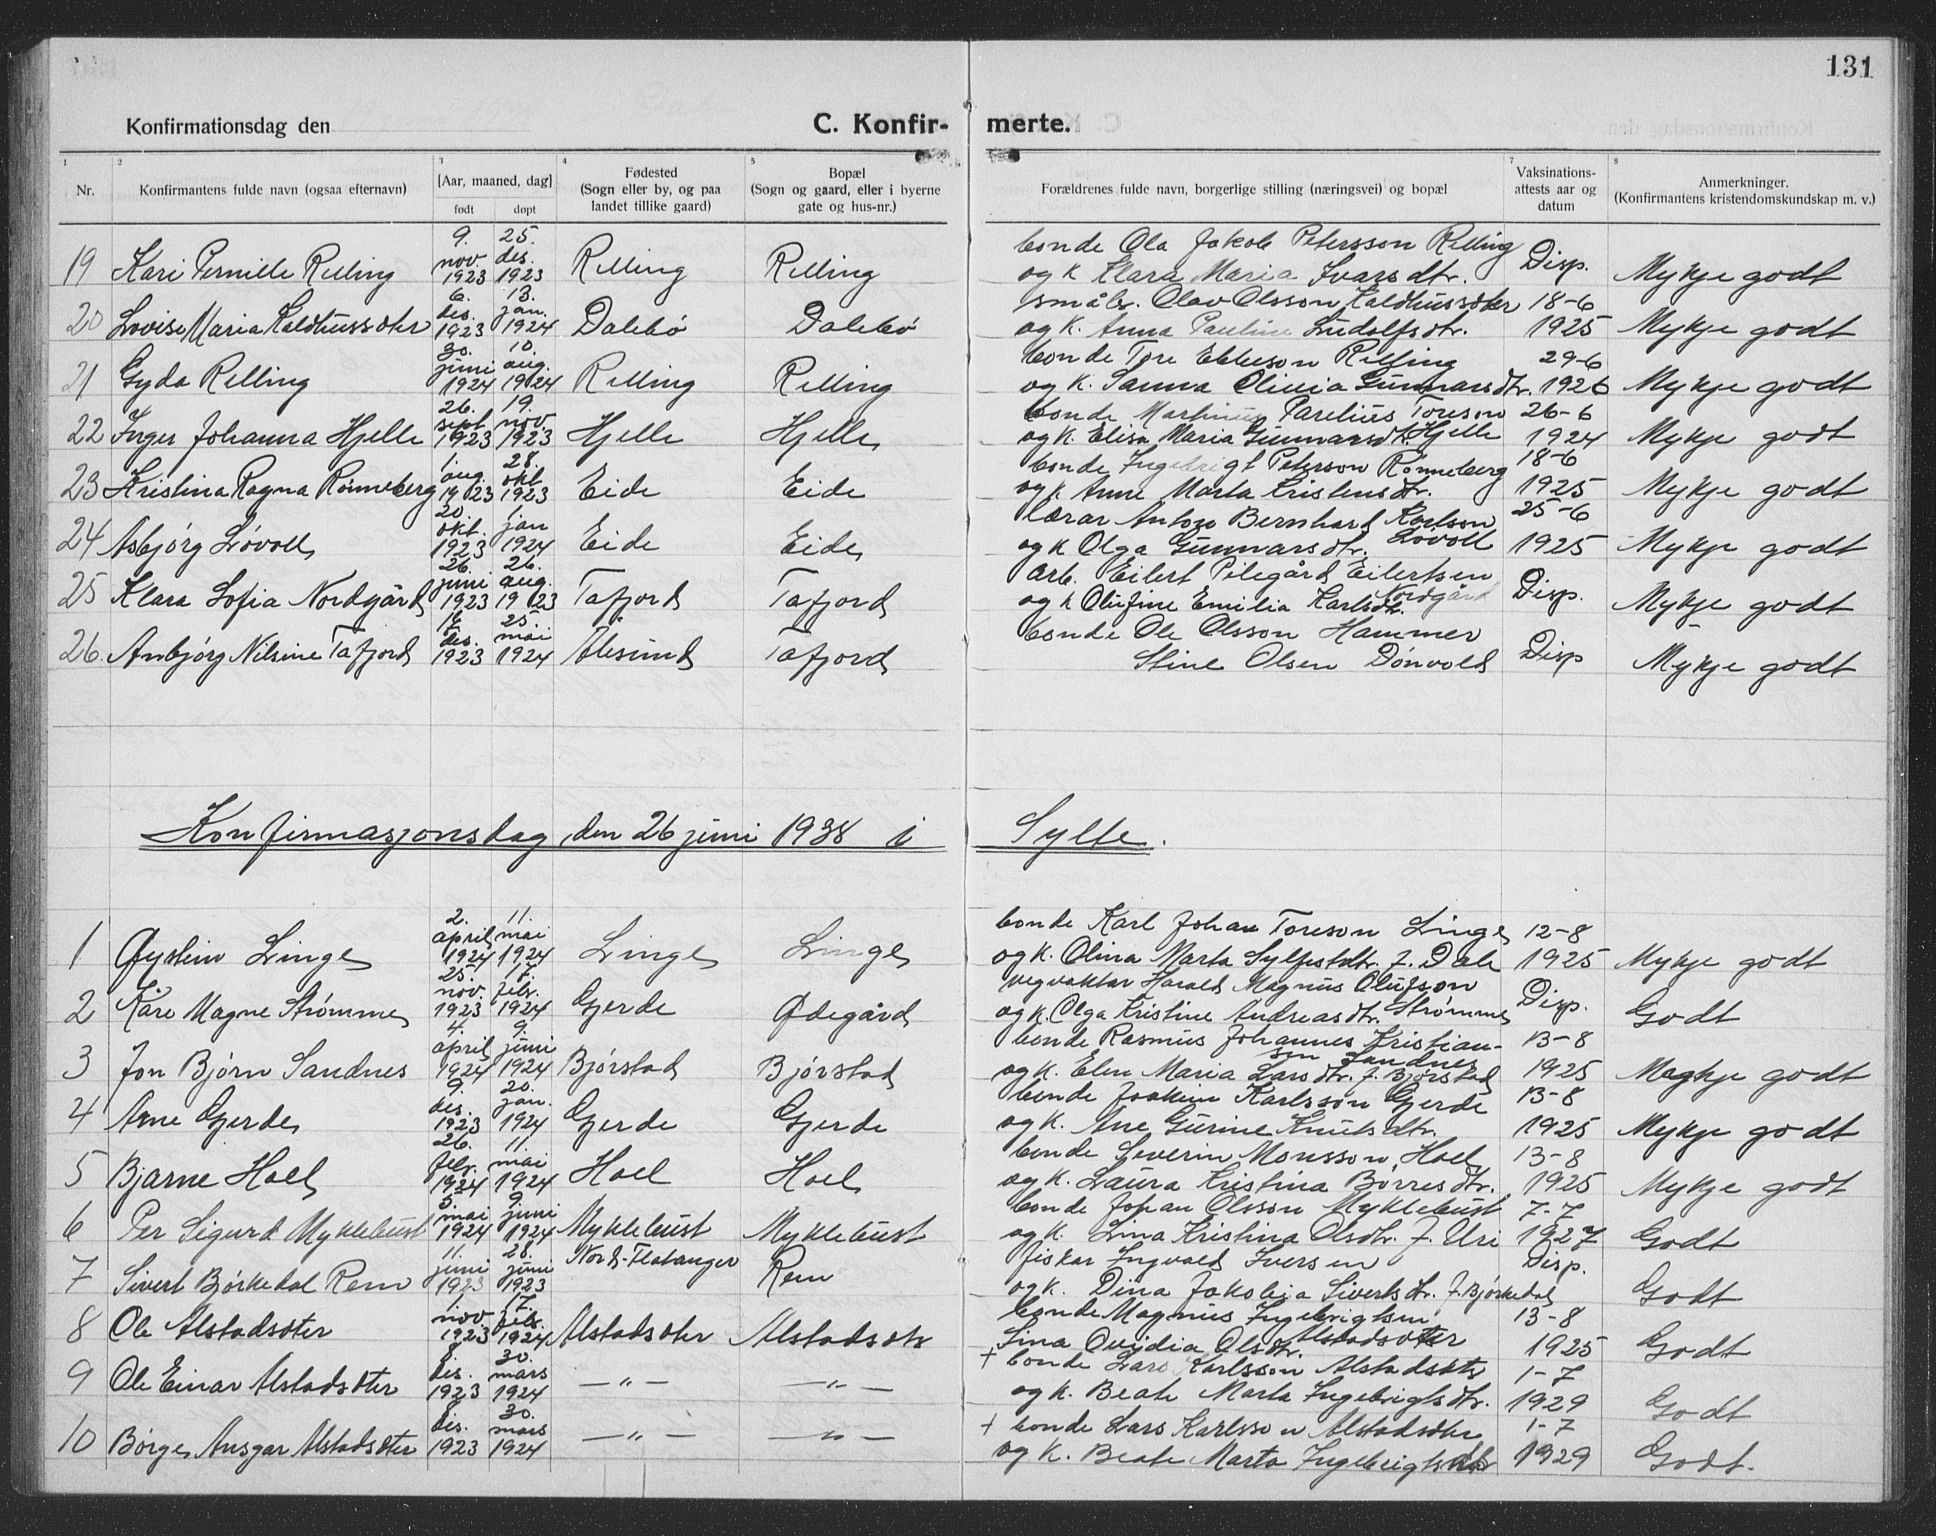 131
Konfirmationsdag den C. Konfir- merte.
1 2 3 4 5 7 8
Nr. Konfirmantens fulde navn (ogsaa efternavn) [Aar, maaned, dag] født døpt Fødested (Sogn eller by, og paa landet tillike gaard) Bopæl (Sogn og gaard, eller i byerne gate og hus-nr.) Forældrenes fulde navn, borgerlige stilling (næringsvei) og bopæl Vaksinations-attests aar og datum Anmerkninger. (Konfirmantens kristendomskundskap m. v.)
19 Kari Pernille Relling 9. nov. 1923 25. des. 1923 Relling Relling bonde Ola Jakob Petersson Relling og k Klara Maria Ivarsdtr. Disp. Mykje godt
20 Lovise Maria Kaldhussæter 6. des. 1923 13. jan. 1924 Dalebø Dalebø småbr. Olav Olsson Kaldhussæter og k. Anna Pauline Ludolfsdtr. 18-6 1925 Mykje godt
21 Gyda Relling 30. juni 1924 10. aug. 1924 Relling Relling bonde Tore Ebbeson Relling og k. Sanna Olivia Gunnarsdtr. 29-6 1926 Mykje godt
22 Inger Johanna Hjelle 26. sept. 1923 19. nov. 1923 Hjelle Hjelle bonde Martinus Parelius Toreson Hjelle og k. Elisa Maria Gunnarsdtr. 26-6 1924 Mykje godt
23 Kristina Ragna Rønneberg 1. aug. 1923 28. okt. 1923 Eide Eide bonde Ingebrigt Peterson Rønneberg og k. Anne Marta Kristensdtr. 18-6 1925 Mykje godt
24 Asbjørg Løvoll 20. okt. 1923 1. jan 1924 Eide Eide lærar Anton Bernhard Karlson Løvoll og k Olga Gunnarsdtr. 25-6 1925 Mykje godt
25 Klara Sofia Nordgård 26. juni 1923 26. aug. 1923 Tafjord Tafjord arb. Eilert Pilegård Eilertsen Nordgård og k Olufine Emilia Karlsdtr. Disp. Mykje godt
26. Anbjørg Nilsine Tafjord des. 1923 25. mai 1924 Ålesund Tafjord bonde Ole Olsson Hammer Stine Olsen Dønvold Disp Mykje godt
Konfirmasjonsdag den 26 juni 1938 i Sylte.
1 Øystein Linge 2. april 1924 11. mai 1924 Linge Linge bonde Karl Johan Toreson Linge og k. Olina Marta Sylfestdtr. f. Dale 12-8 1925 Mykje godt
2 Kåre Magne Strømme 25. nov. 1923 17. febr. 1924 Gjerde Ødegård vegvaktar Harald Magnus Olufson Strømme og k. Olga Kristine Andreasdtr. Disp. Godt
3 Jon Bjørn Sandnes 4. april 1924 9. juni 1924 Bjørstad Bjørstad bonde Rasmus Johannes Kristian-sen Sandnes og k. Elen Maria Larsdtr. f. Bjørstad 13-8 1925 Megkje godt
4 Arne Gjerde 9. des. 1923 20. jan. 1924 Gjerde Gjerde bonde Joakim Karlsson Gjerde og k. Ane Gurine Knutsdtr. 13-8 1925 Mykje godt
5 Bjarne Hoel 26. febr. 1924 11. mai 1924 Hoel Hoel bonde Severin Monsson Hoel og k. Laura Kristina Børresdtr. 13-8 1925 Mykje godt
6 Per Sigurd Myklebust 5. mai 1924 9. juni 1924 Myklebust Myklebust bonde Johan Olsson Myklebust og k. Lina Kristina Olsdtr. f. Uri 7-7 1927 Godt
7 Sivert Bjørkedal Rem 11. juni 1923 28. juni 1923 Nord-Flatanger Rem fiskar Ingvald Iversen og k. Dina Jakobia Sivertsdtr. f. Bjørkedal Disp. Godt
8 Ole Alstadsæter 1. nov 1923 17. febr. 1924 Alstadsæter Alstadsæter bonde Magnus Ingebrigtsen Alstadsæter Lina Ovidia Olsdtr. 13-8 1925 Godt
9 Ole Einar Alstadsæter 8. des. 1923 30. mars 1924 — " — — " — + bonde Lars Karlsson Alstadsæter og k. Beate Marta Ingebrigtsdtr. 1-7 1929 Godt
10 Børge Ansgar Alstadsæter 8. des. 1923 30. mars 1924 — " — — " — + bonde Lars Karlsson Alstadsæter og k. Beate Marta Ingebrigtsdtr 1-7 1929 Godt.